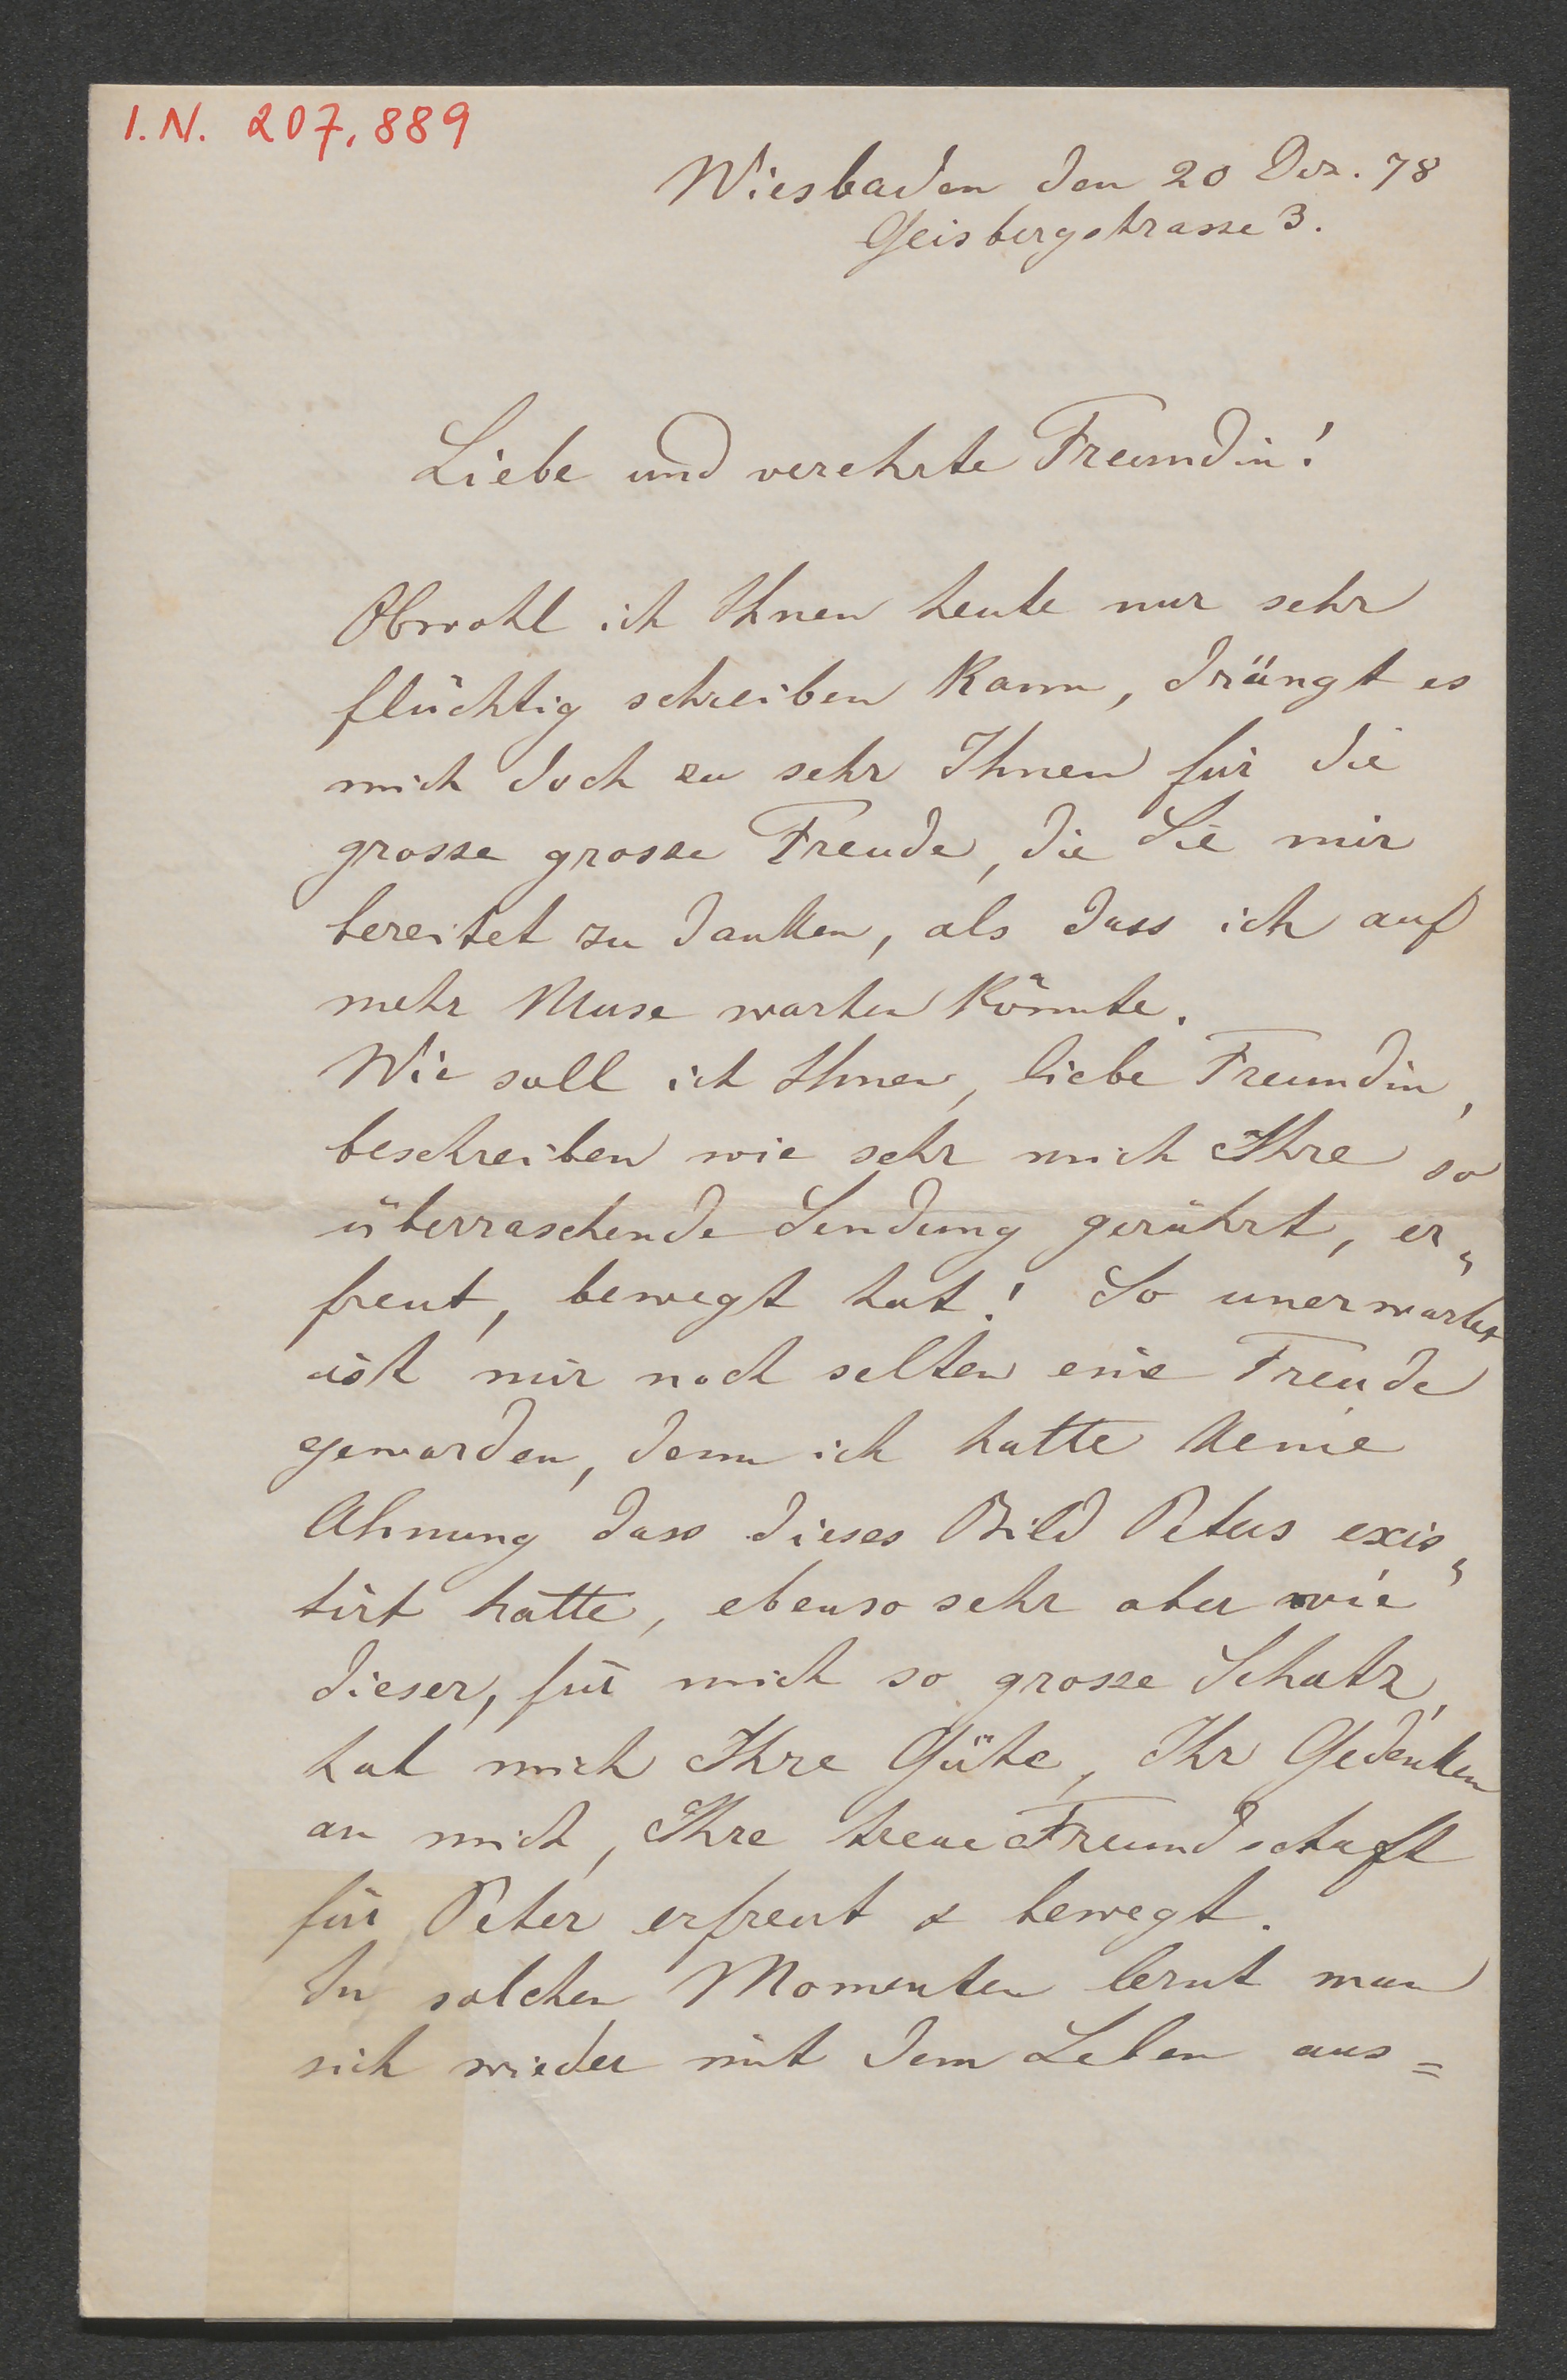 I.N. 207.889
Wiesbaden den 20 Dez. 78
Geisbergstrasse 3.
Liebe und verehrte Freundin!
Obwohl ich Ihnen heute nur sehr
flüchtig schreiben kann, drängt es
mich doch zu sehr Ihnen für die
grosse grosse Freude, die Sie mir
bereitet zu danken, als dass ich auf
mehr Muse warten könnte.
Wie soll ich Ihnen, liebe Freundin,
beschreiben wie sehr mich Ihre so
überraschende Sendung gerührt, er„
freut, bewegt hat! So unerwartet
ist mir noch selten eine Freude
geworden, denn ich hatte keine
Ahnung dass dieses Bild Peters exis„
tirt hatte, ebenso sehr aber wie
dieser, für mich so grosse Schatz,
hat mich Ihre Güte, Ihr Gedenken
an mich, Ihre treue Freundschaft
für Peter erfreut & bewegt.
In solchen Momenten lernt man
sich wieder mit dem Leben aus=